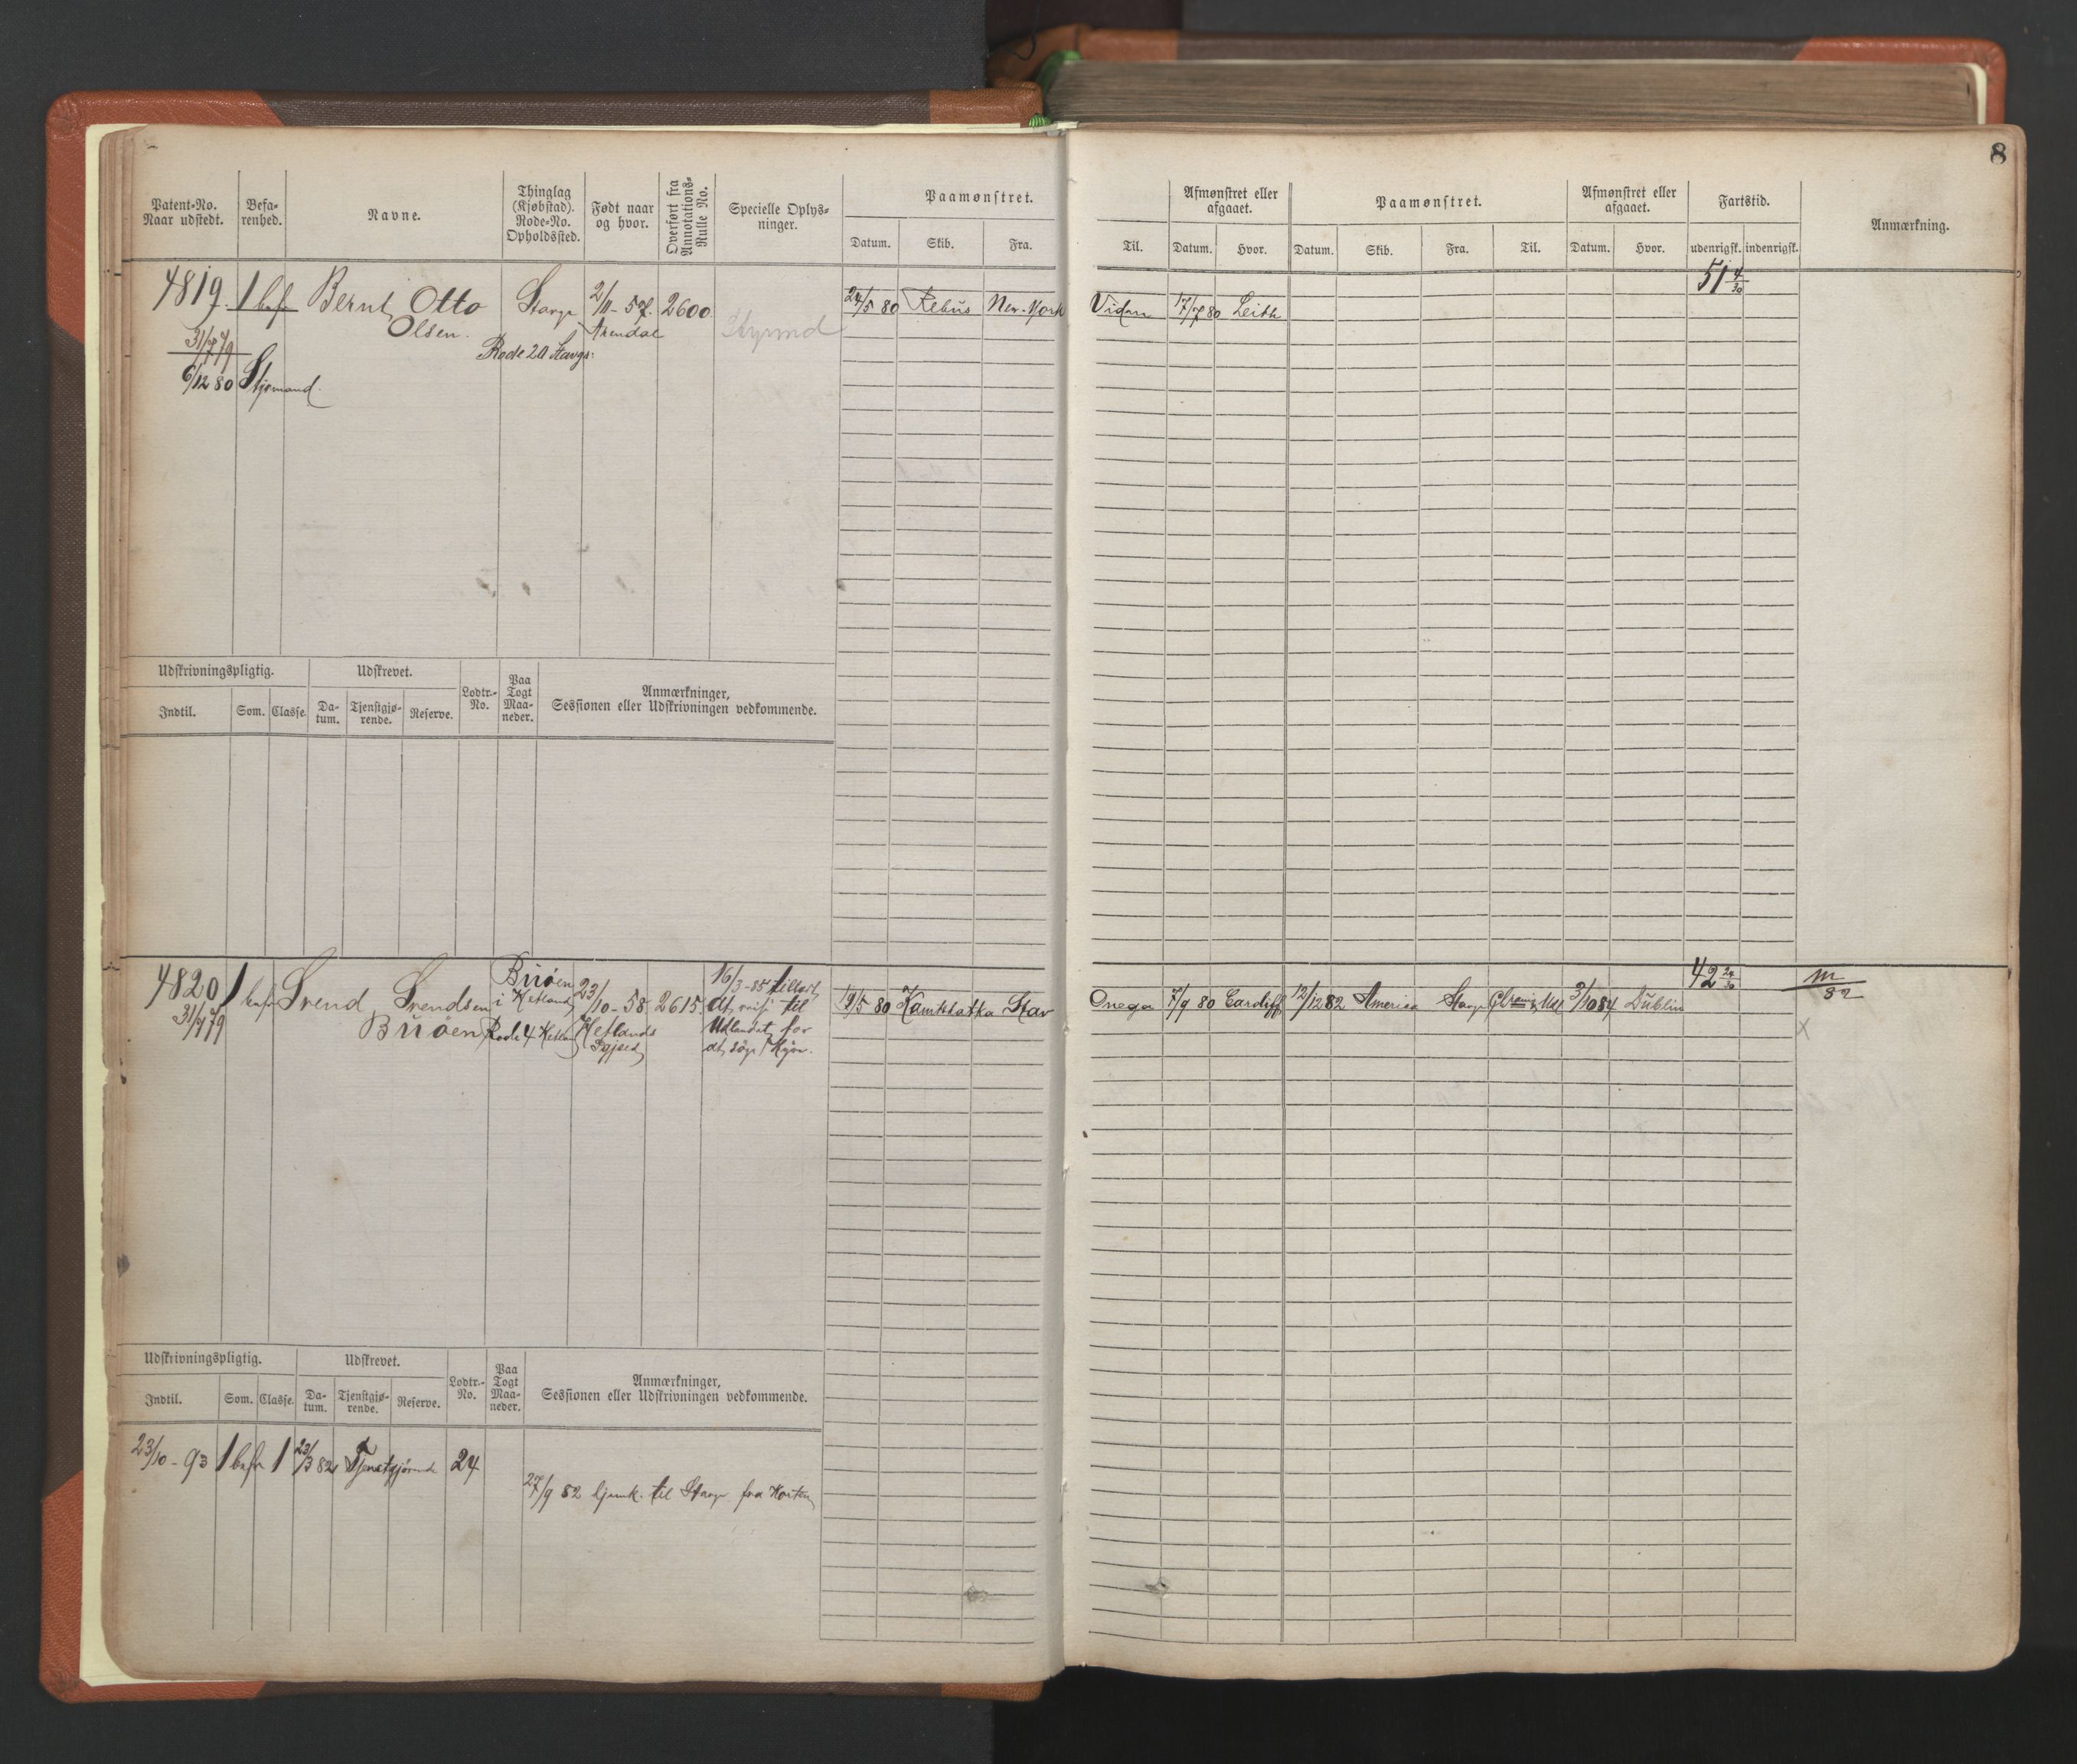 8
Patent-No. Naar udstedt.
Befa-renhed.
Navne.
Thinglag (Kjøbstad). Rode-No. Opholdssted.
Født naar og hvor.
Overført fra Annotations-Rulle No.
Specielle Oplys-ninger.
Paamønstret.
Datum. Skib. Fra. Til.
Afmønstret eller afgaaet.
Datum. Hvor.
Paamønstret.
Datum. Skib. Fra. Til.
Afmønstret eller afgaaet.
Datum. Hvor.
Fartstid.
udenrigsk. indenrigsk.
Anmærkning.
51 4/30
4819. 1 bef Bernt Otto Stavgr 2/11-57. 2600 24/5 80 Rebus New-York Vidan 17/7 80 Leith
Olsen. Arendal Styrmd
31/7 79 Rode 20 Stavgr:
6/12 80 Stjrmand.
Udskrivningspligtig. Udskrevet. Lodtr.-No. Paa Togt Maa-neder. Anmærkninger, Sessionen eller Udskrivningen vedkommende.
Indtil. Som. Classe. Da-tum. Tjenstgjø-rende. Reserve.
42 24/30
4820 1 befr Svend Svendsen Buøen i Hetland 23/10-58. 2615. 16/3-85 tilladt 19/5 80 Kamtshatka Stav Onega 7/9 80 Cardiff 12/12 82 America Stavgr 3/10 84 Dublin
31/7 79 Buøen Rode 4 Hetland Hetlands at reise til
Udlandet for
at søge Hyre.
m/82
x
Udskrivningspligtig. Udskrevet. Lodtr.-No. Paa Togt Maa-neder. Anmærkninger, Sessionen eller Udskrivningen vedkommende.
Indtil. Som. Classe. Da-tum. Tjenstgjø-rende. Reserve.
23/10-93 1 befr 1 23/3 82 Tjenstgjørende 24
27/9 82 hjemk. til Stavgr fra Horten